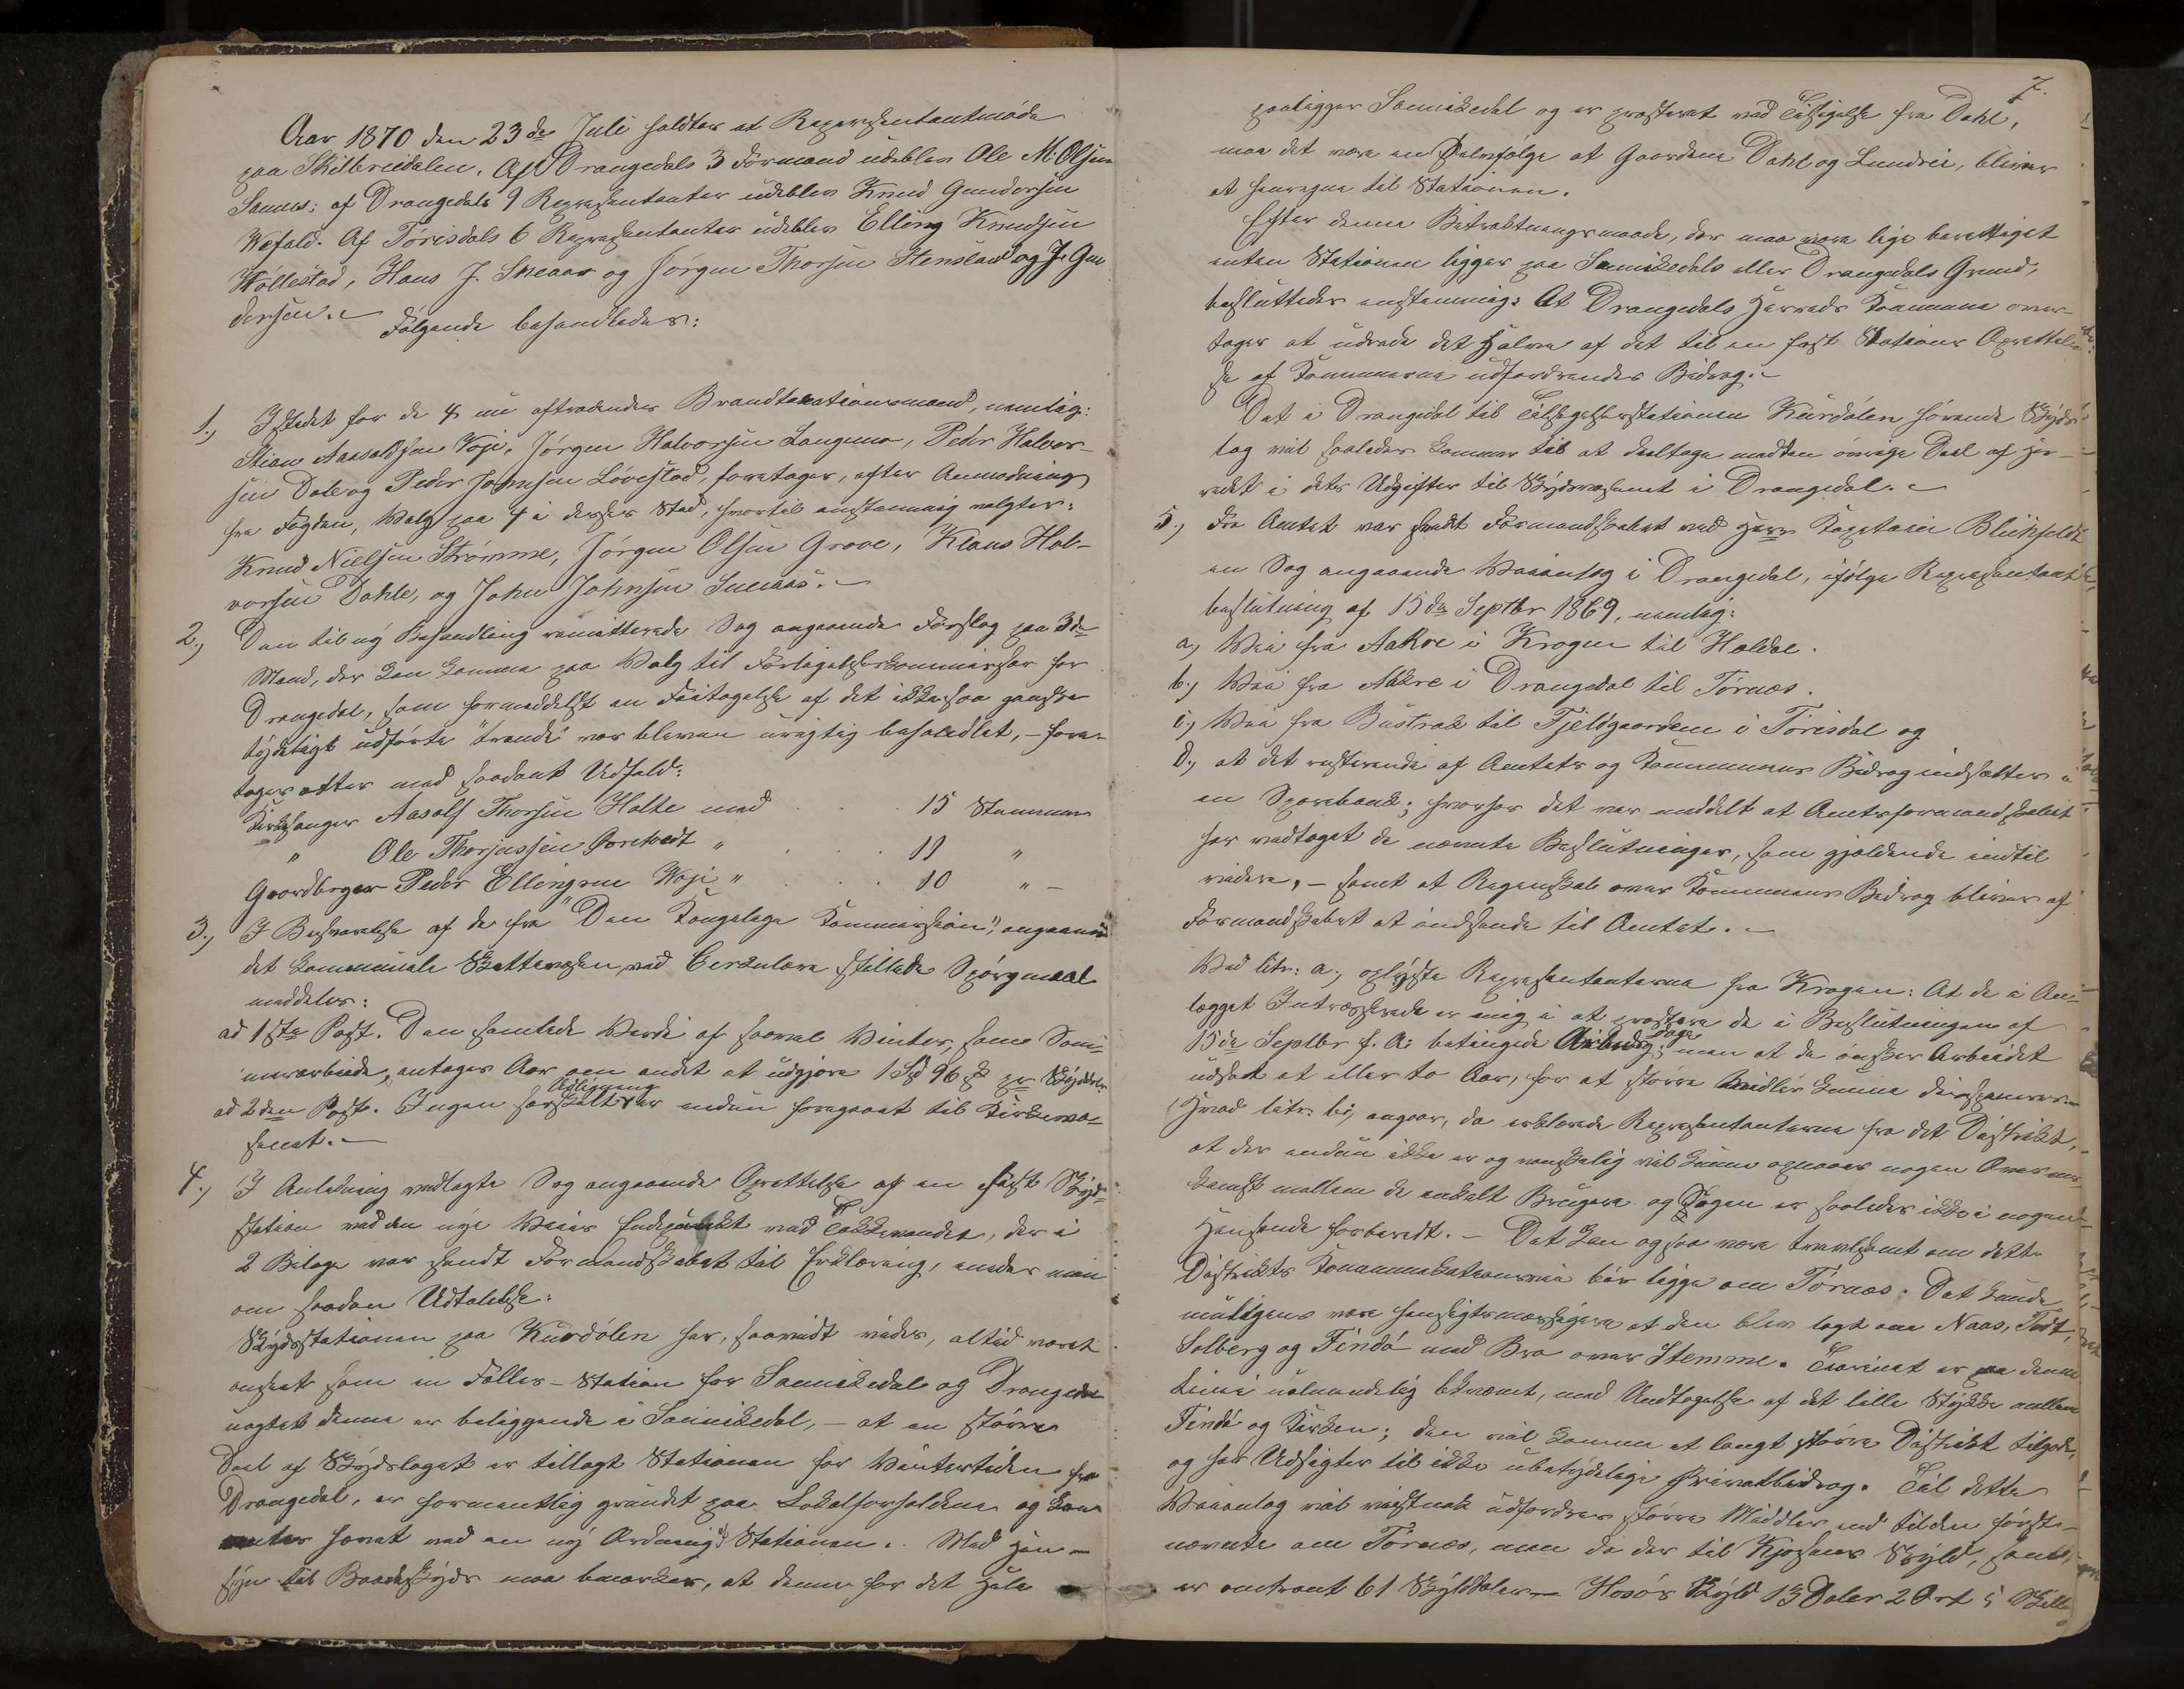 Aar 1870 den 23de Juli holdtes et Repræsentantmøde
paa Skilbredalen. Af Drangedals 3 Formænd udeblev Ole M. Olsen
Sannes; af Drangedals 9 Repræsentanter udeblev Knud Gundersen
Wefald. Af Tørisdals 6 Repræsentanter udeblev Elling Knudsen
Wøllestad, Hans J. Sneaas og Jørgen Thorsen Stensland og J. Gun
dersen.
Følgende behandledes:
1., Istedet for de 4 nu aftrædendes Brandtaxationsmænd, nemlig:
Stian Aasoldsen Voje, Jørgen Halvorsen Langmo, Peder Halvor-
sen Dale og Peder Johnsen Løvestad, foretages, efter Anmodning
fra Fogden, Valg paa 4 i deres Sted, hvortil enstemmig valgtes:
Knud Nielsen Strømme, Jørgen Olsen Grove, Klaus Hal-
vorsen Dahle, og John Johnsen Sneaas.
2., Den til ny Behandling remitterede Sag angaaende Forslag paa 3de
Mænd, der kan komme paa Valg til Forligelseskommissær for
Drangedal, som formeddelst en Feiltagelse af det ikke saa ganske
tydeligt udførte "trende" var bleven urigtig behandlet, - fore-
toges atter med saadant Udfald:
Kirkesanger Aasolf Thorsen Holte med . . . 15 Stemmer
" Ole Thorjussen Gorstvedt " . . . 11 "
Gaardbruger Peder Ellingsen Weje " . . . 10 " -
3., I Besvarelse af de fra "Den Kongelige Kommission", angaaende
det kommunale Skattevæsen, ved Cirkulære stillede Spørgmaal
meddeles:
ad 1ste Post. Den samlede Værdi af saavel Vinter, som Som-
merarbeide, antages Aar om andet at udgjøre 1 Spd 96 ß pr Skylddlr.
ad 2den Post. Ingen særskilt Udligning er endnu foregaaet til Kirkevæ-
senet.
4., I Anledning vedlagte Sag angaaende Oprettelse af en fast Skyds-
station ved den nye Veies Endepunkt ved Tokkevandet, der i
2 Bilage var sendt Formandskabet til Erklæring, enedes man
om saadan Udtalelse:
Skydsstationen paa Kurdølen har, saavidt vides, altid været
anseet som en Fælles-Station for Sannikedal og Drangedal
uagtet denne er beliggende i Sannikedal, - at en større
Deel af Skydslaget er tillagt Stationen for Vintertiden fra
Drangedal, er formentlig grundet paa Lokalforholdene og kom-
mer hævet ved en ny Ordning af Stationen. Med Hen-
syn til Baadskyds maa bemærkes, at denne for det Hele
7.
paaligger Sannikedal og er præsteret ved Tilsigelse fra Dahl,
maa det være en Selvfølge at Gaardene Dahl og Lundrei, bliver
at henregne til Stationen.
Efter denne Betragtningsmaade, der maa være lige berettiget
enten Stationen ligger paa Sannikedals eller Drangedals Grund,
besluttedes enstemmig: At Drangedals Herreds Kommune over-
tager at udrede det Halve af det til en fast Stations Oprettel-
se af Kommunerne udfordrendes Bidrag.
Det i Drangedal til Tilsigelsesstationen Kurdølen hørende Skyds-
lag vil saaledes komme til at deeltage med den øvrige Deel af Her-
redet i dets Udgifter til Skydsvæsenet i Drangedal.
5., Fra Amtet var sendt Formandskabet ved Herr Kaptein Blichfeldt
en Sag angaaende Veianlæg i Drangedal, ifølge Repræsentant
beslutning af 15de Septbr 1869, nemlig:
a, Vei fra Aakre i Krogen til Haldal.
b., Vei fra Aakre i Drangedal til Tørnæs.
c., Vei fra Bustrak til Fjeldgaardene i Tørisdal og
d., at det resterende af Amtets og Kommunens Bidrag indsættes i
en Sparebank; hvorhos det var meddelt at Amtsformandskabet
har vedtaget de nævnte Beslutninger, som gjældende indtil
videre, - samt at Regnskab over Kommunens Bidrag bliver af
Formandskabet at indsende til Amtet.
Ved litr: a., oplyste Repræsentanterne fra Krogen: At de i An-
lægget Interesserede er enig i at præstere de i Beslutningen af
15de Septbr f. A. betingede Arbeidsdage; men at de ønsker Arbeidet
udsat et eller to Aar, for at større Midler kunne disponeres.
Hvad litr: b, angaar, da erklærede Repræsentanterne fra det Distrikt,
at der endnu ikke er og vanskelig vil kunne opnaaes nogen Overens-
komst mellem de enkelt Brugere og Sagen er saaledes ikke i nogen
Henseende forberedt. - Det kan ogsaa være tvivlsomt om dette
Distrikts Kommunikationsvei bør ligge om Tørnæs. Det kunde
muligens være hensigtsmæssigere at den blev lagt om Naas, Tvedt,
Solberg og Findø med Bro over Stemme. Terrinet er paa denne
Linie ualmindelig bekvemt, med Undtagelse af det lille Stykke mellem
Findø og Kirken; den vil komme et langt større Distrikt tilgode,
og har Udsigter til ikke ubetydelige Privatbidrag. Til dette
Veianlæg vil vistnok udfordres større Middler end til den først-
nævnte om Tørnæs, men da der til Kjøsens Skyld, som
er omtrent 61 Skylddaler - Hosøs Skyld 13 Daler 2 Ort 5 Skill